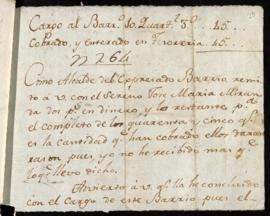 Cargo al Barr.o 10. Quart.l 3.o ... 45...
Cobrado, y Enterado en Tesoreria. 45...
N 264
Como Alcalde del Expresado Barrio, remi-
to á v. con el Sereno Jose Maria
da dos p.s en dinero, y los restantes p.a
el completo de los quarenta y cinco q.e
es la Cantidad q.e han cobrado ellos daran
rason pues yo no he recibido mas q.e
lo q.e llevo dicho.
Advierto á v. q.e ha concluido
con el Cargo de este Barrio pues el